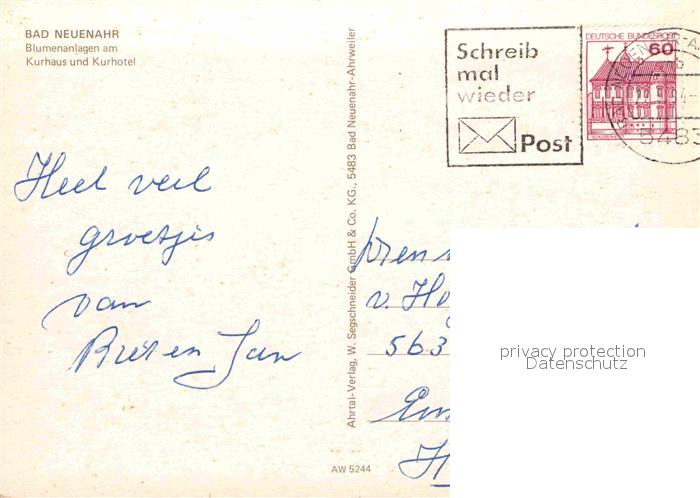 BAD NEUENAHR
Blumenanlagen am
Kurhaus und Kurhotel
Schreib
mal
wieder
Post
DEUTSCHE BUNDESPOST
60
5483
Heel veel
groetjes
van
en Jan
Ahrtal-Verlag, W. Segschneider GmbH & Co. KG., 5483 Bad Neuenahr-Ahrweiler
v.
563
privacy protection
Datenschutz
AW 5244